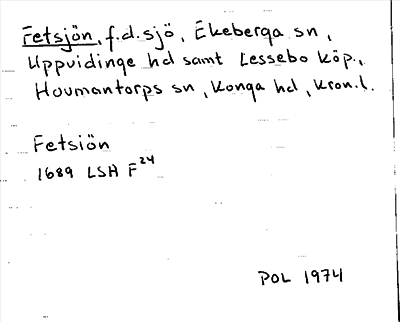 Fetsjön, f.d. sjö, Ekeberga sn,
Uppvidinge hd samt Lessebo köp.,
Hovmantorps sn, Konga hd, Kron.l.
Fetsiön
1689 LSA F24
POL 1974